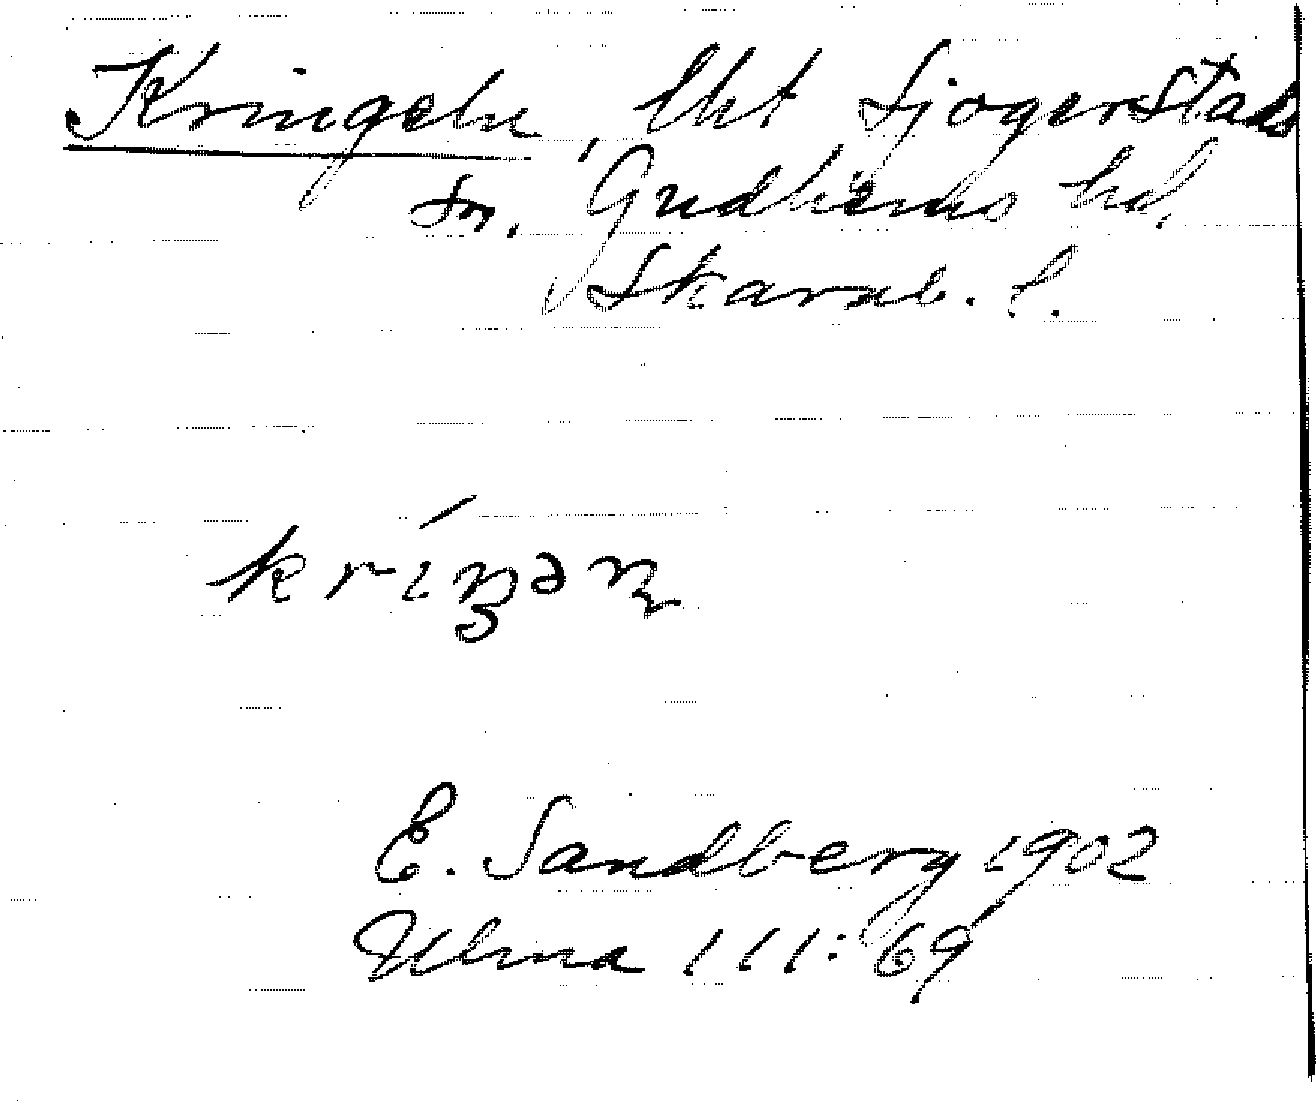 Kringeln, lht Sjogerstads
sn. Gudhems hd,
Skarab. l.
kríŋən
E. Sandberg 1902
Ulma 111:69